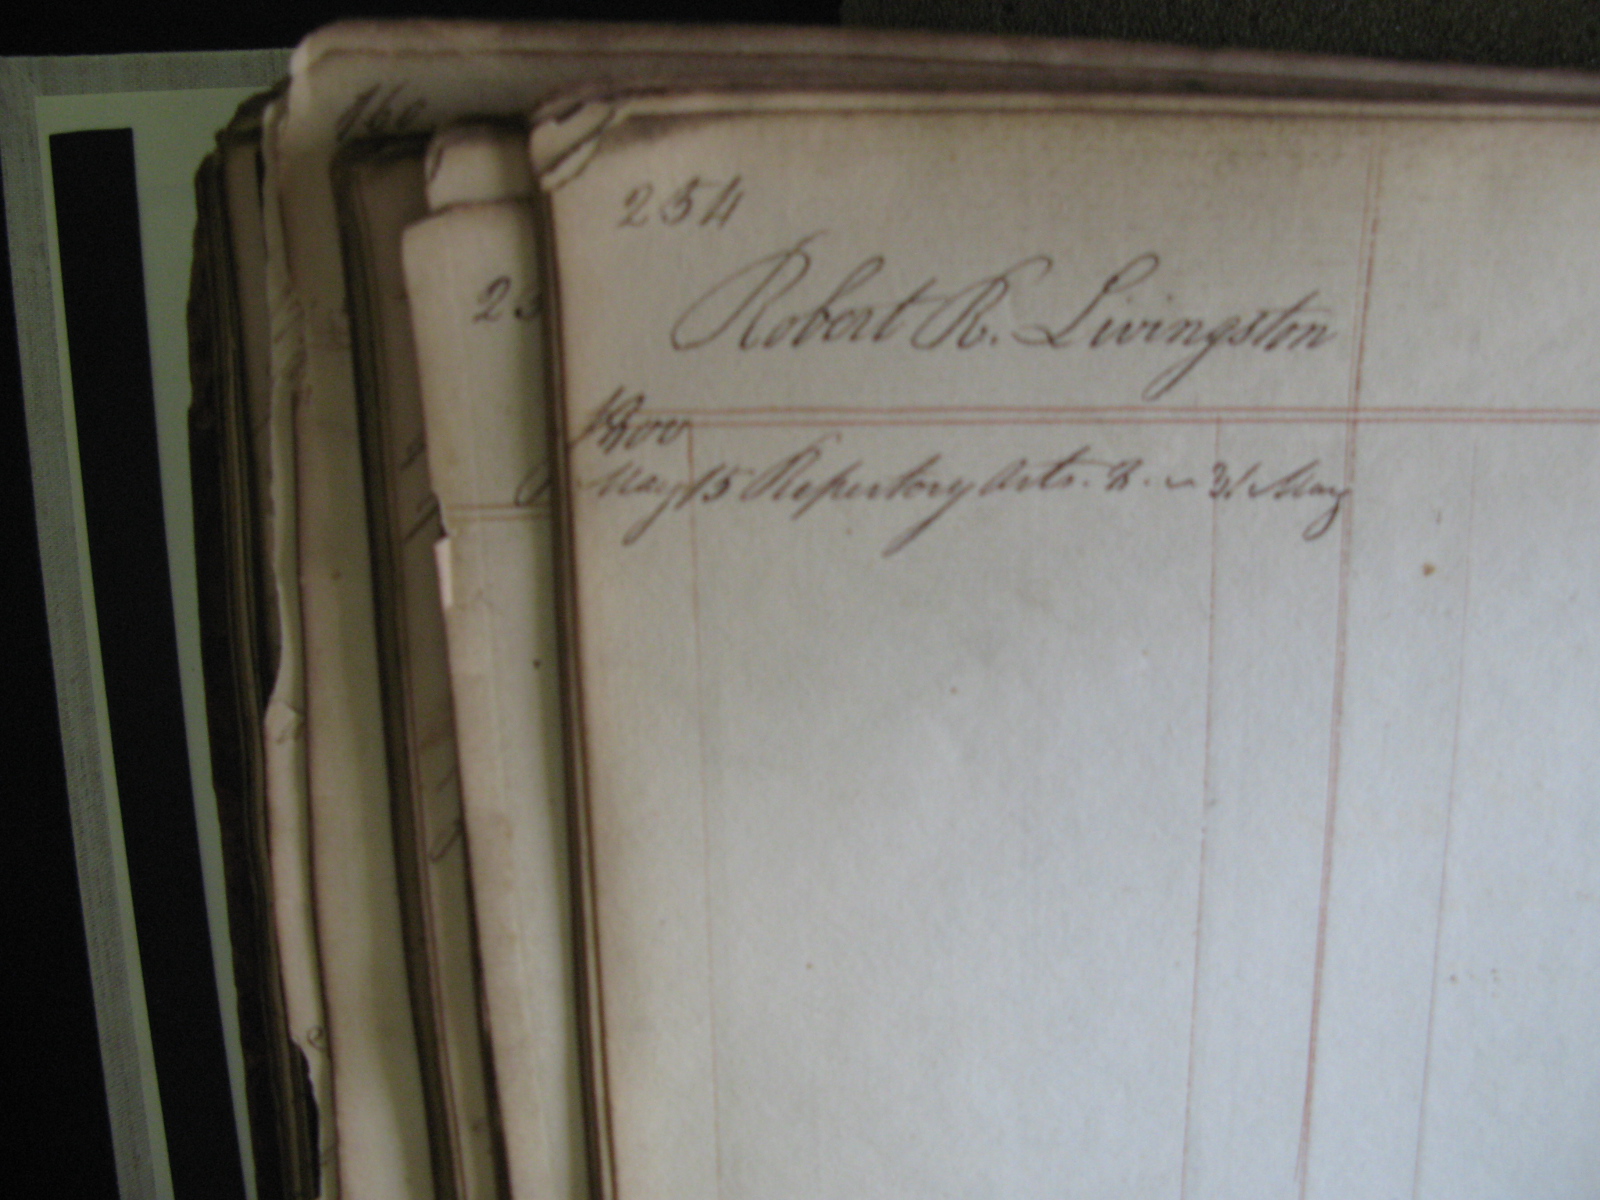 160
254
23
Robert R. Livingston
1800
May 15 Repertory Arts. 2. 31 May